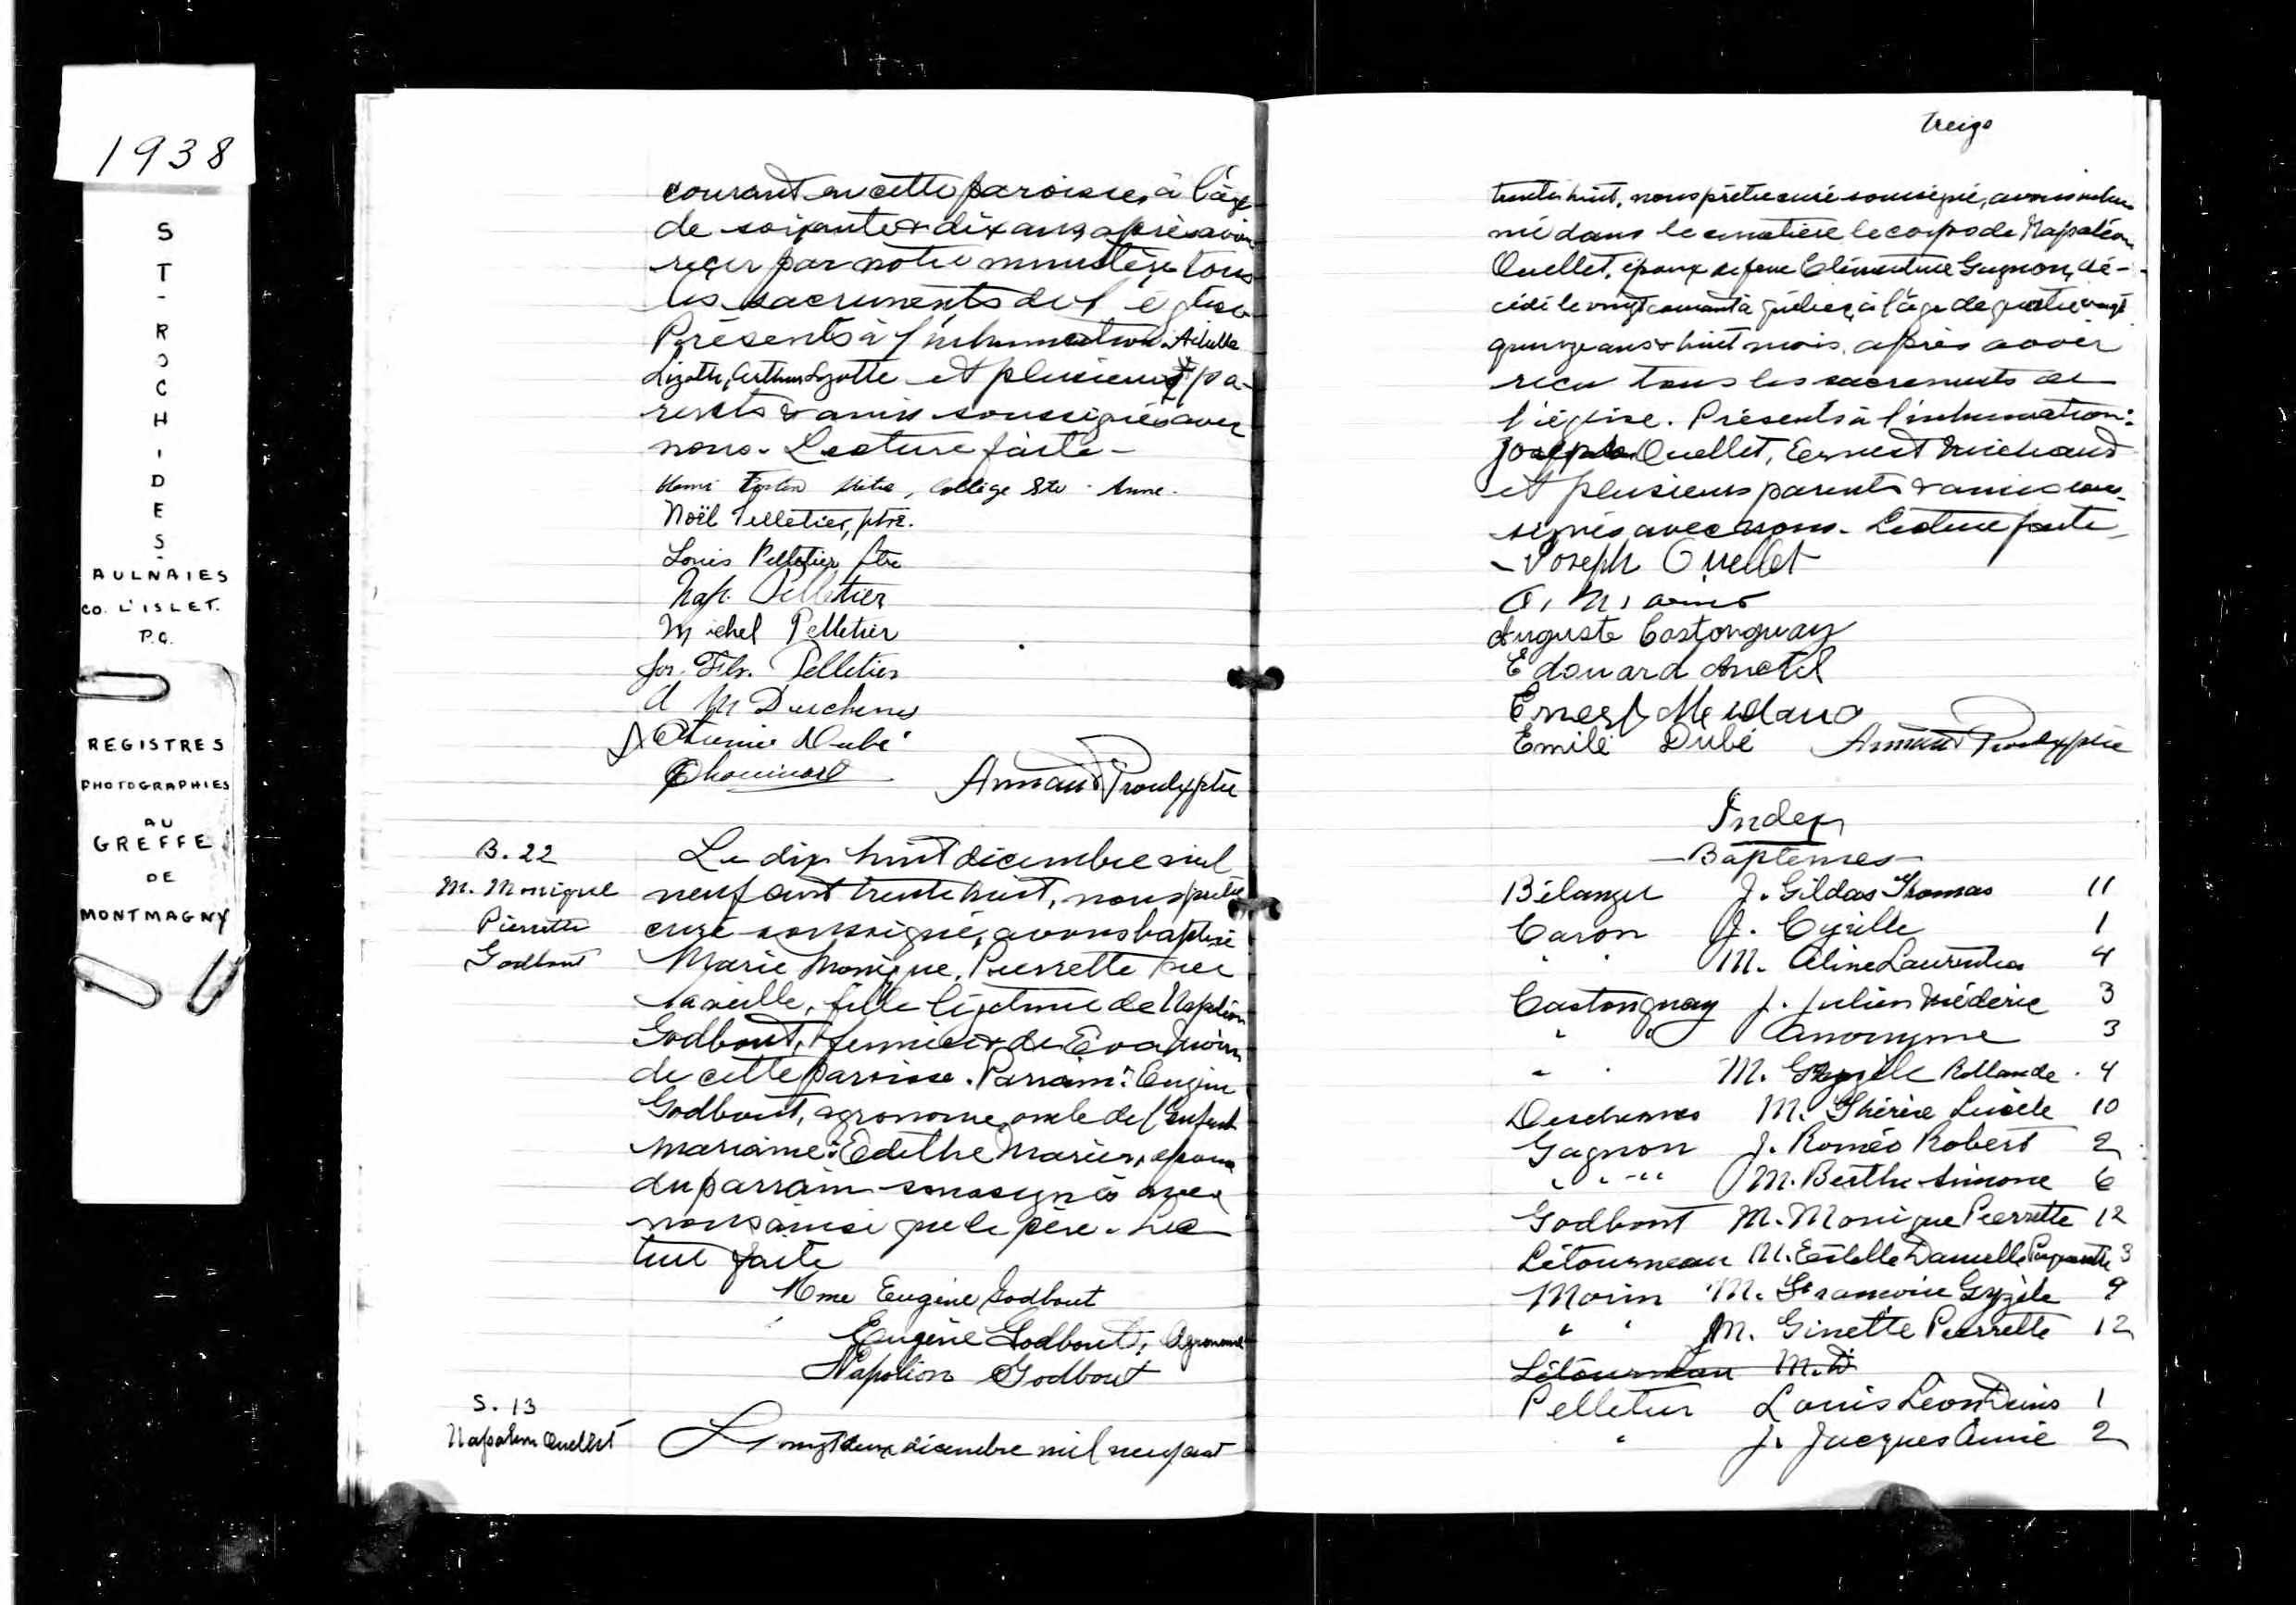 1938
ST-ROCH-DES-
AULNAIES
CO. L'ISLET.
P.Q.
REGISTRES
PHOTOGRAPHIES
AU
GREFFE
DE
MONTMAGNY
courant en cette paroisse, à l'âge
de soixante & dix ans, après avoir
reçu par notre ministère tous
les sacrements de l'église
Présents à l'inhumation: Achille
Lizotte, Arthur Lizotte et plusieurs pa-
rents & amis soussignés avec
nous. Lecture faite -
Henri Fortin Ptre, Collège Ste-Anne.
Noël Pelletier, ptre.
Louis Pelletier ptre
Nap. Pelletier
Michel Pelletier
Jos. Pelletier
A M Deschenes
Dubé
Chouinard
Armand Proulx ptre
B. 22
M. Monique
Pierrette
Godbout
Le dix huit décembre mil
neuf cent trente huit, nous prêtre
curé soussigné, avons baptisé
Marie Monique, Pierrette née
la veille, fille légitime de Napoléon
Godbout, fermier & de Eva Morin
de cette paroisse. Parrain: Eugène
Godbout, agronome oncle de l'enfant
marraine: Edithe Marier, épouse
du parrain soussignés avec
nous ainsi que le père. Lec
ture faite
Mme Eugène Godbout
Eugène Godbout, Agronome
Napoléon Godbout
S. 13
Napoléon Ouellet
Le vingt deux décembre mil neuf cent
treize
trente huit, nous prêtre curé soussigné, avons inhu
mé dans le cimetière le corps de Napoléon
Ouellet, époux de feue Clémentine Gagnon, dé-
cédé le vingt courant à Québec, à l'âge de quatre vingt
quinze ans & huit mois, après avoir
reçu tous les sacrements de
l'église. Présents à l'inhumation:
Joseph Ouellet, Ernest Michaud
et plusieurs parents & amis sous-
signés avec nous. Lecture faite
Joseph Ouellet
Auguste Castonguay
Edouard Anctil
Ernest Michaud
Emile Dubé Armand Proulx ptre
Index
- Baptemes -
Bélanger J. Gildas Thomas 11
Caron J. Cyrille 1
" " M. Céline Laurentia 4
Castonguay J. Julien Médéric 3
" " Anonyme 3
" " M. Gyzèle Rollande. 4
Deschenes M. Thérèse Lucile 10
Gagnon J. Roméo Robert 2
" " " M. Berthe Simone 6
Godbout M. Monique Pierrette 12
Létourneau M. Estelle Danielle 3
Morin M. Francoise Gyzèle 9
" " M. Ginette Pierrette 12
Létourneau M. D
Pelletier Louis Léon Denis 1
" J. Jacques Aimé 2